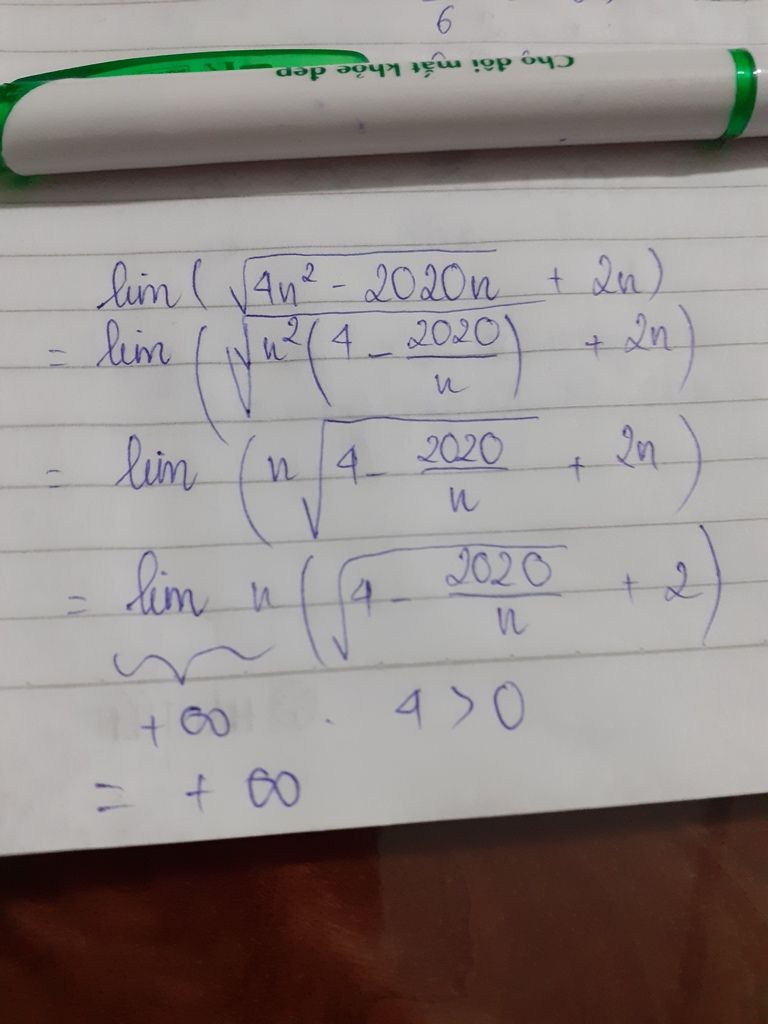 6
Cho đôi mắt khỏe đẹp
lim ( √(4n² - 2020n) + 2n )
= lim ( √(n² ( 4 - 2020/n )) + 2n )
= lim ( n √(4 - 2020/n) + 2n )
= lim n ( √(4 - 2020/n) + 2 )
+∞ . 4 > 0
= +∞